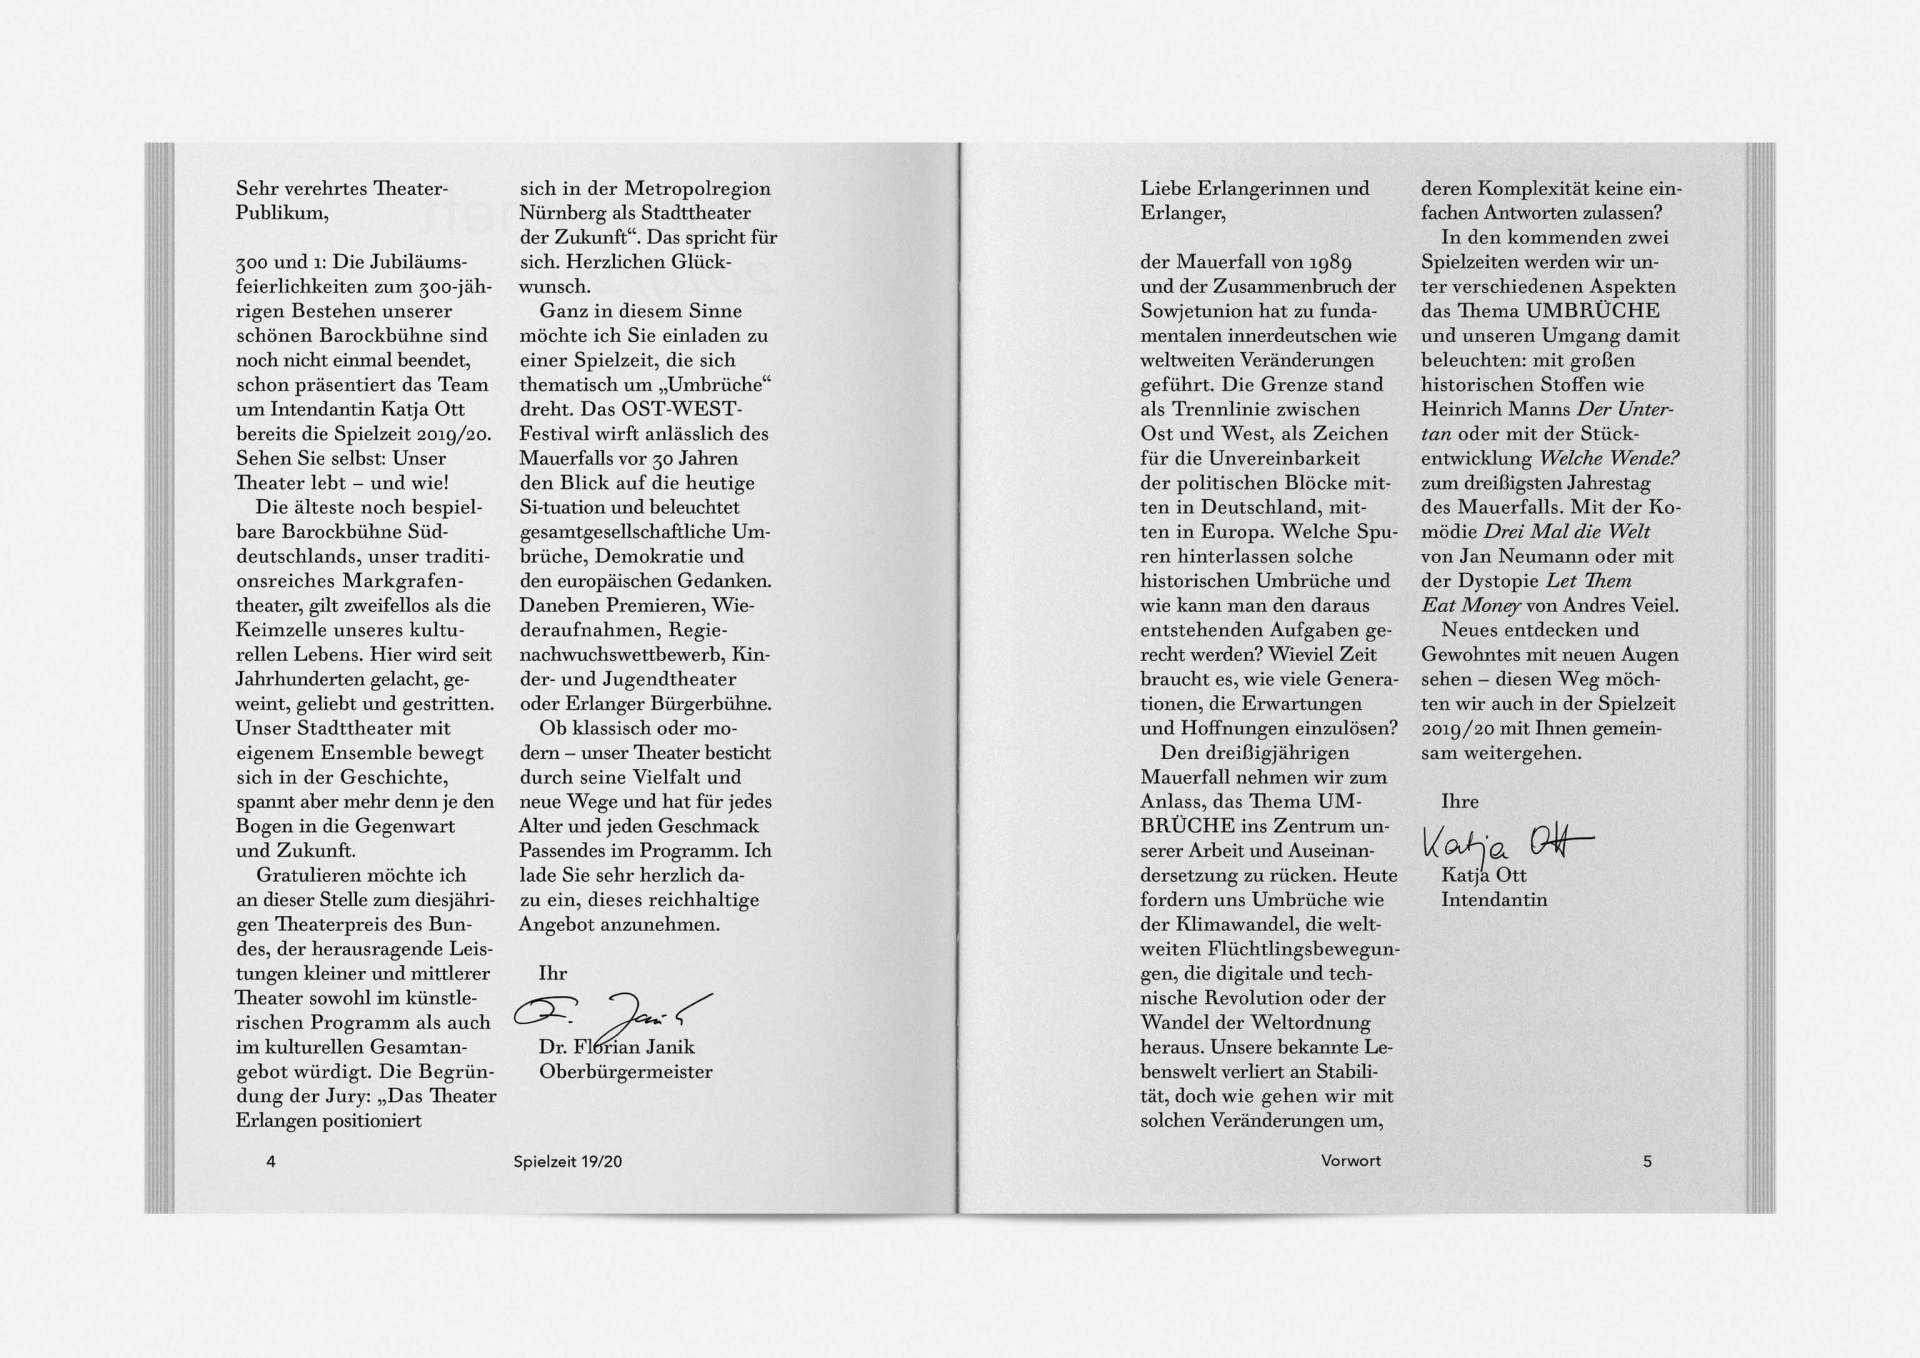 Sehr verehrtes Theater-
Publikum,
300 und 1: Die Jubiläums-
feierlichkeiten zum 300-jäh-
rigen Bestehen unserer
schönen Barockbühne sind
noch nicht einmal beendet,
schon präsentiert das Team
um Intendantin Katja Ott
bereits die Spielzeit 2019/20.
Sehen Sie selbst: Unser
Theater lebt – und wie!
Die älteste noch bespiel-
bare Barockbühne Süd-
deutschlands, unser traditi-
onsreiches Markgrafen-
theater, gilt zweifellos als die
Keimzelle unseres kultu-
rellen Lebens. Hier wird seit
Jahrhunderten gelacht, ge-
weint, geliebt und gestritten.
Unser Stadttheater mit
eigenem Ensemble bewegt
sich in der Geschichte,
spannt aber mehr denn je den
Bogen in die Gegenwart
und Zukunft.
Gratulieren möchte ich
an dieser Stelle zum diesjähri-
gen Theaterpreis des Bun-
des, der herausragende Leis-
tungen kleiner und mittlerer
Theater sowohl im künstle-
rischen Programm als auch
im kulturellen Gesamtan-
gebot würdigt. Die Begrün-
dung der Jury: „Das Theater
Erlangen positioniert
sich in der Metropolregion
Nürnberg als Stadttheater
der Zukunft“. Das spricht für
sich. Herzlichen Glück-
wunsch.
Ganz in diesem Sinne
möchte ich Sie einladen zu
einer Spielzeit, die sich
thematisch um „Umbrüche“
dreht. Das OST-WEST-
Festival wirft anlässlich des
Mauerfalls vor 30 Jahren
den Blick auf die heutige
Si-tuation und beleuchtet
gesamtgesellschaftliche Um-
brüche, Demokratie und
den europäischen Gedanken.
Daneben Premieren, Wie-
deraufnahmen, Regie-
nachwuchswettbewerb, Kin-
der- und Jugendtheater
oder Erlanger Bürgerbühne.
Ob klassisch oder mo-
dern – unser Theater besticht
durch seine Vielfalt und
neue Wege und hat für jedes
Alter und jeden Geschmack
Passendes im Programm. Ich
lade Sie sehr herzlich da-
zu ein, dieses reichhaltige
Angebot anzunehmen.
Ihr
F. Janik
Dr. Florian Janik
Oberbürgermeister
4
Spielzeit 19/20
Liebe Erlangerinnen und
Erlanger,
der Mauerfall von 1989
und der Zusammenbruch der
Sowjetunion hat zu funda-
mentalen innerdeutschen wie
weltweiten Veränderungen
geführt. Die Grenze stand
als Trennlinie zwischen
Ost und West, als Zeichen
für die Unvereinbarkeit
der politischen Blöcke mit-
ten in Deutschland, mit-
ten in Europa. Welche Spu-
ren hinterlassen solche
historischen Umbrüche und
wie kann man den daraus
entstehenden Aufgaben ge-
recht werden? Wieviel Zeit
braucht es, wie viele Genera-
tionen, die Erwartungen
und Hoffnungen einzulösen?
Den dreißigjährigen
Mauerfall nehmen wir zum
Anlass, das Thema UM-
BRÜCHE ins Zentrum un-
serer Arbeit und Auseinan-
dersetzung zu rücken. Heute
fordern uns Umbrüche wie
der Klimawandel, die welt-
weiten Flüchtlingsbewegun-
gen, die digitale und tech-
nische Revolution oder der
Wandel der Weltordnung
heraus. Unsere bekannte Le-
benswelt verliert an Stabili-
tät, doch wie gehen wir mit
solchen Veränderungen um,
deren Komplexität keine ein-
fachen Antworten zulassen?
In den kommenden zwei
Spielzeiten werden wir un-
ter verschiedenen Aspekten
das Thema UMBRÜCHE
und unseren Umgang damit
beleuchten: mit großen
historischen Stoffen wie
Heinrich Manns Der Unter-
tan oder mit der Stück-
entwicklung Welche Wende?
zum dreißigsten Jahrestag
des Mauerfalls. Mit der Ko-
mödie Drei Mal die Welt
von Jan Neumann oder mit
der Dystopie Let Them
Eat Money von Andres Veiel.
Neues entdecken und
Gewohntes mit neuen Augen
sehen – diesen Weg möch-
ten wir auch in der Spielzeit
2019/20 mit Ihnen gemein-
sam weitergehen.
Ihre
Katja Ott
Katja Ott
Intendantin
Vorwort
5